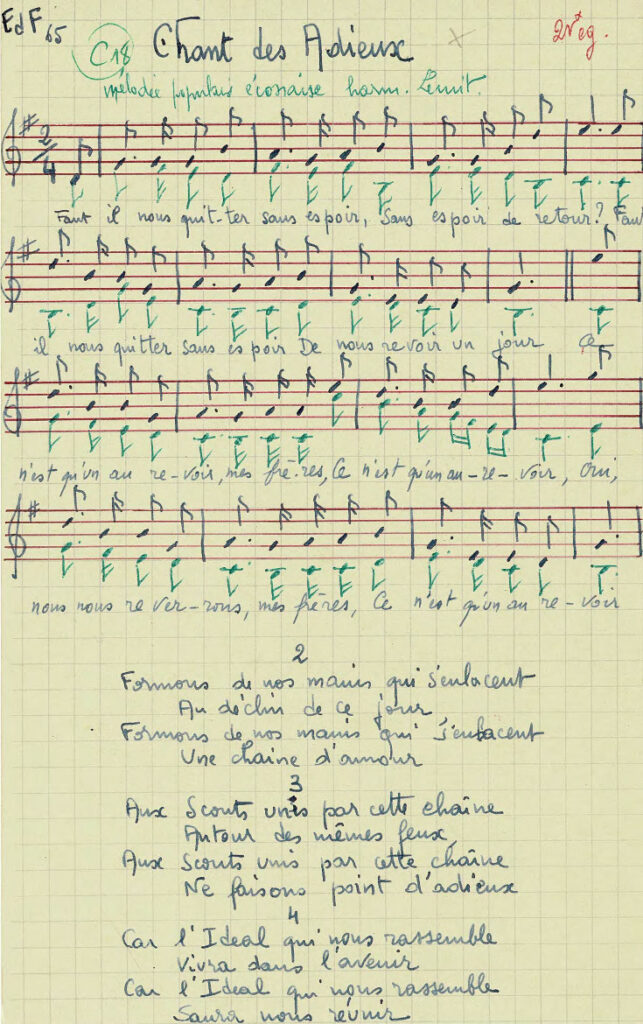 EdF 65
C18
Chant des Adieux
mélodie populaire écossaise harm. Lemit.
2/4
Faut il nous quit-ter sans espoir, Sans espoir de retour? Faut
il nous quitter sans espoir De nous revoir un jour Ce
n'est qu'un au re-voir, mes frè-res, Ce n'est qu'un au-re-voir, Oui,
nous nous re ver-rons, mes frères, Ce n'est qu'un au re-voir
2
Formons de nos mains qui s'enlacent
Au déclin de ce jour
Formons de nos mains qui s'enlacent
Une chaine d'amour
3
Aux Scouts unis par cette chaîne
Autour des mêmes feux,
Aux Scouts unis par cette chaîne
Ne faisons point d'adieux
4
Car l'Ideal qui nous rassemble
Vivra dans l'avenir
Car l'Ideal qui nous rassemble
Saura nous réunir